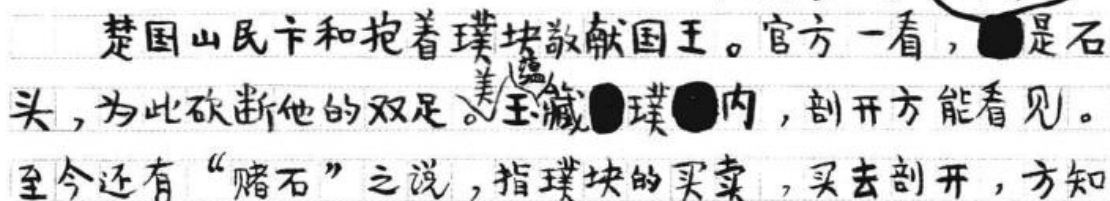 楚国山民卞和抱着璞块敬献国王。官方一看，是石
头，为此砍断他的双足。美玉蕴藏璞内，剖开方能看见。
至今还有“赌石”之说，指璞块的买卖，买去剖开，方知